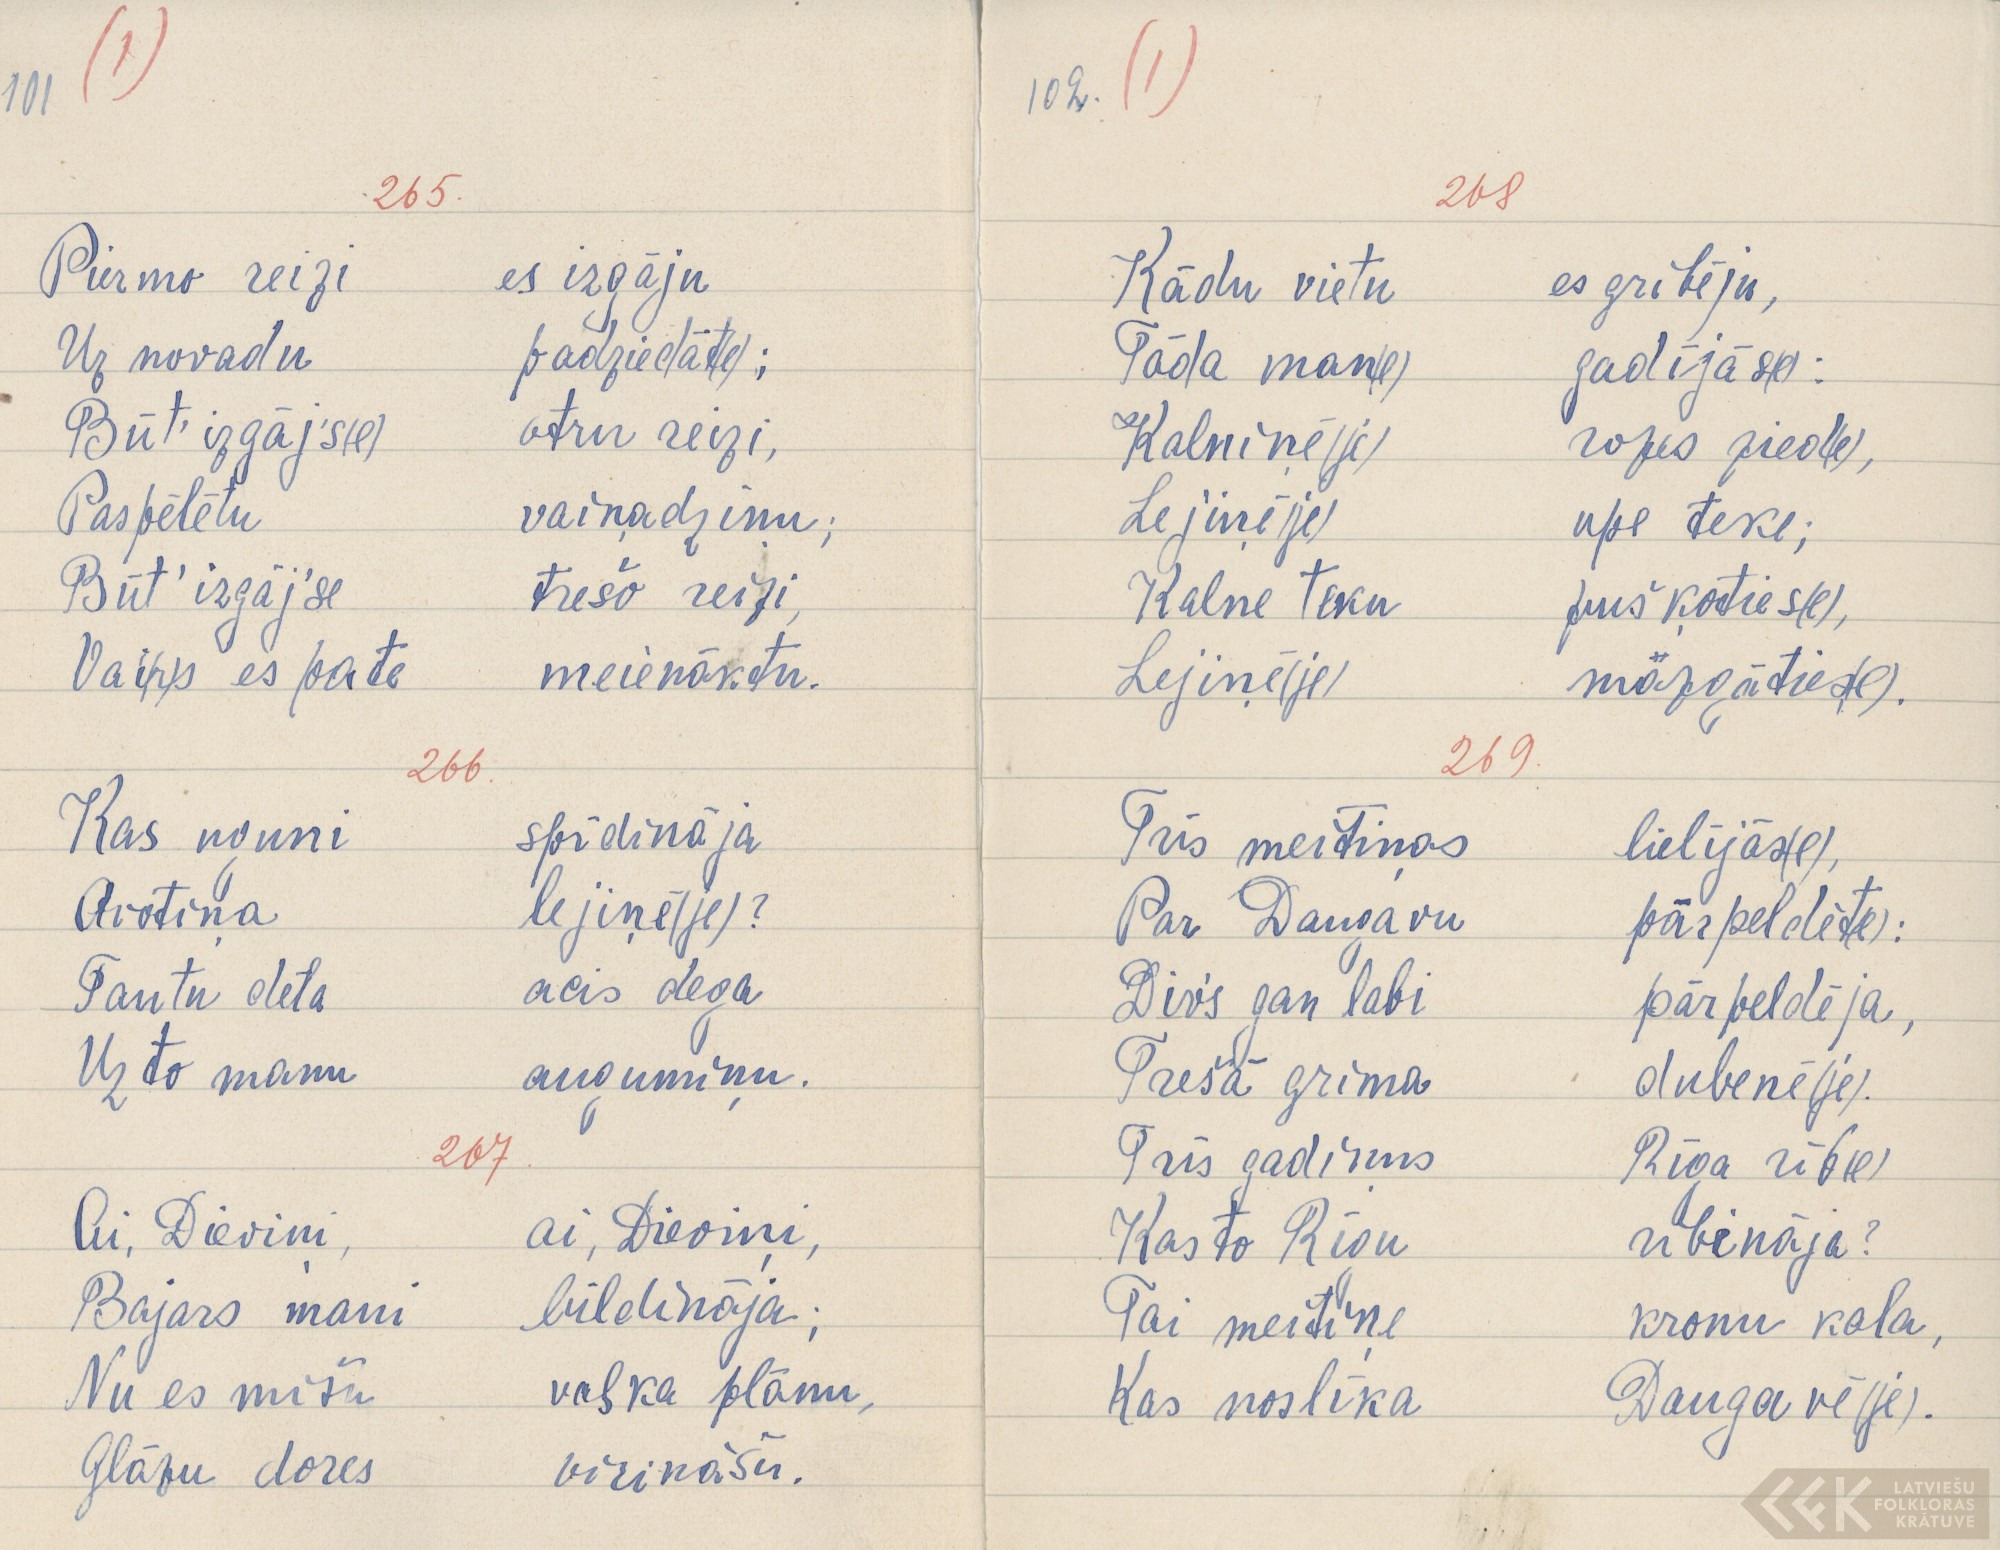 101 (1)
265.
Piermo reizi es izgāju
Uz novadu padziedāt(e);
Būt' izgāj's(e) otru reizi,
Paspēlētu vaiņadziņu;
Būt' izgāj'se trešo reizi,
Vai(r)s es pate meienāktu.
266.
Kas uguni spīdināja
Avotiņa lejiņē(je)?
Tautu dēla acis dega
Uz to manu augumiņu.
267.
Ai, Dieviņi, ai, Dieviņi,
Bajars mani bildināja;
Nu es mīšu vaska plānu,
Glāžu dores virināšu.
102. (1)
268
Kādu vietu es gribēju,
Tāda man(e) gadījās(e):
Kalniņē(je) rozes zied(e),
Lejiņē(je) upe teke;
Kalne teku puškoties(e),
Lejiņē(je) māzgāties(e).
269.
Trīs meitiņas lielījās(e),
Par Daugavu pārpeldēt(e):
Div's gan labi pārpeldēja,
Trešā grima dubenē(je).
Trīs gadiņus Rīga rīb(e)
Kas to Rīgu rībināja?
Tai meitiņe kronu kala,
Kas noslīka Daugavē(je).
LATVIEŠU
FOLKLORAS
KRĀTUVE